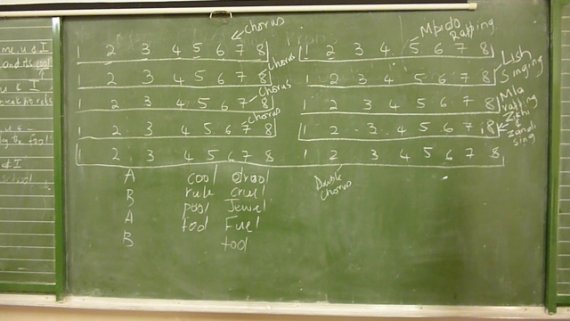 chorus
1 2 3 4 5 6 7 8 1 2 3 4 5 6 7 8 Rapping
Chorus
1 2 3 4 5 6 7 8 1 2 3 4 5 6 7 8 Singing
Chorus
1 2 3 4 5 6 7 8 1 2 3 4 5 6 7 8 Rapping
Chorus
1 2 3 4 5 6 7 8 1 2 3 4 5 6 7 8 sing
1 2 3 4 5 6 7 8 1 2 3 4 5 6 7 8
A cool drool Double
B rule cruel chorus
A pool Jewel
A tool Fuel
B tool